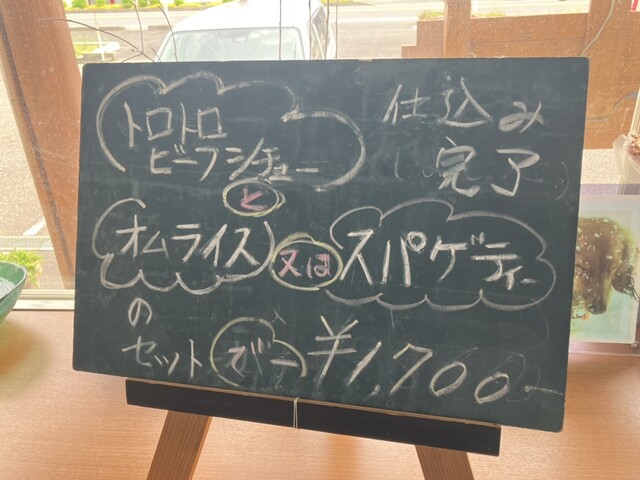 トロトロ
ビーフシチュー
仕込み
完了
と
オムライス 又は スパゲティー
の
セット でー ¥1,700-